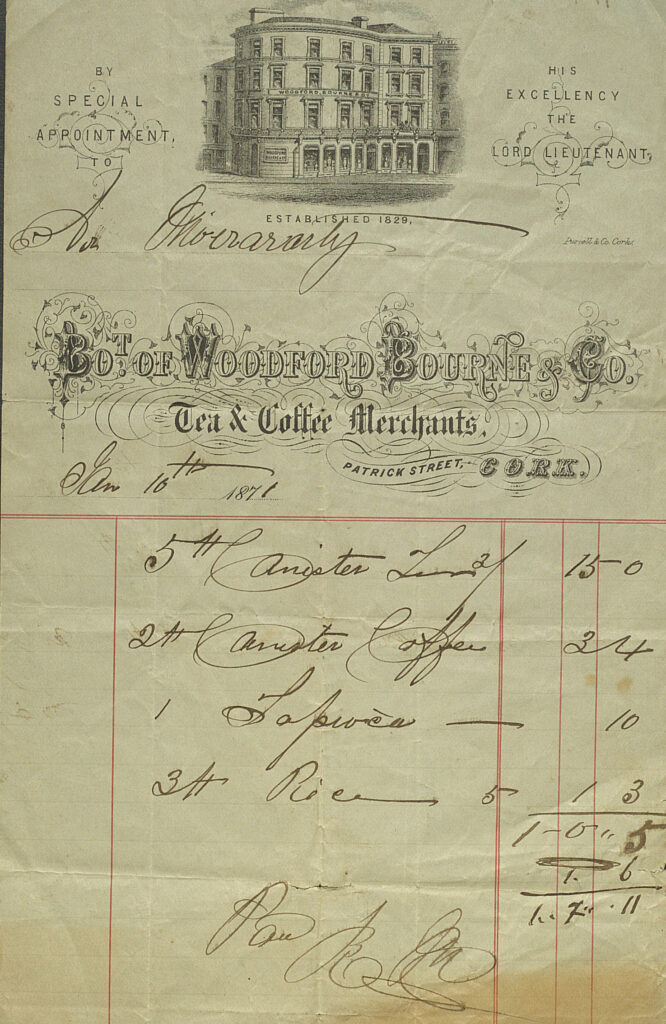 BY
SPECIAL
APPOINTMENT,
TO
HIS
EXCELLENCY
THE
LORD LIEUTENANT,
WOODFORD, BOURNE & Co
ESTABLISHED 1829,
Purnell & Co. Cork
BOT. OF WOODFORD BOURNE & Co.
Tea & Coffee Merchants,
PATRICK STREET, CORK.
Jan 10th 1871
5 lb Canister 3/ 15 0
2 lb Canister Coffee 3 4
1 Tapioca — 10
3 lb Rice 5 1 3
1 - 0 " 5
1. 6
1 .. 7 " 11